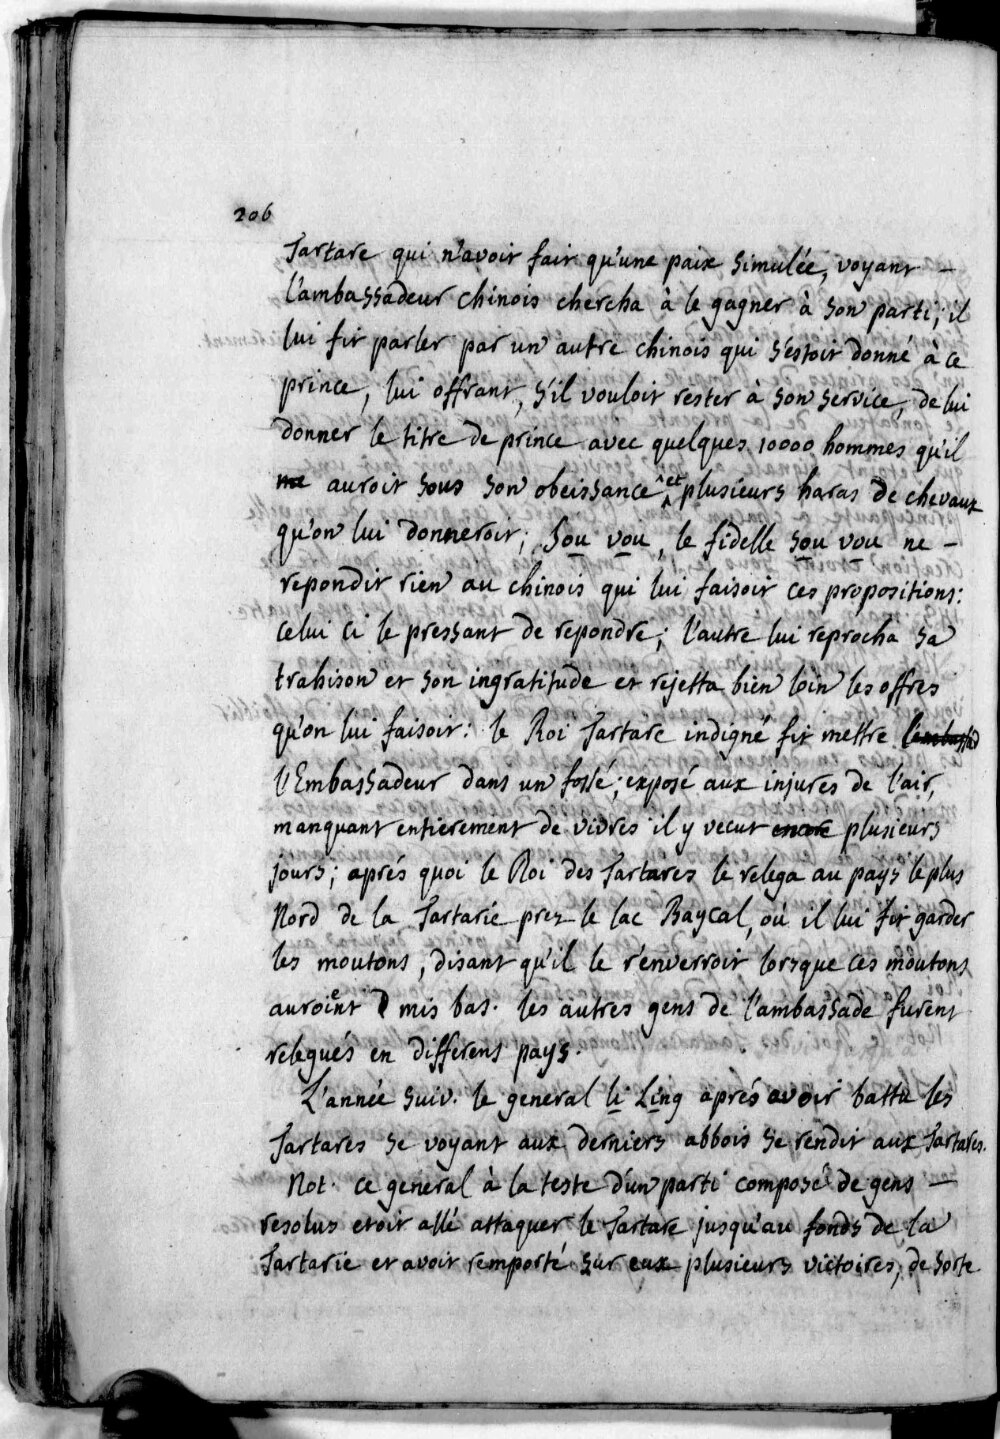 206
Tartare qui n'avoit fait qu'une paix simulée, voyant –
l'ambassadeur chinois chercha à le gagner à son parti; il
lui fit parler par un autre chinois qui s'estoit donné à ce
prince, lui offrant, s'il vouloit rester à son service, de lui
donner le titre de prince avec quelques 10000 hommes qu'il
auroit sous son obeissance et plusieurs haras de chevaux
qu'on lui donneroit; Sou vou, le fidelle sou vou ne –
repondit rien au chinois qui lui faisoit ces propositions:
celui ci le pressant de repondre; l'autre lui reprocha sa
trahison et son ingratitude et rejetta bien loin les offres
qu'on lui faisoit: le Roi Tartare indigné fit mettre
l'Embassadeur dans un fossé; exposé aux injures de l'air,
manquant entierement de vivres il y vecut encore plusieurs
jours; aprés quoi le Roi des Tartares le relega au pays le plus
Nord de la Tartarie prez le lac Baycal, où il lui fit garder
les moutons, disant qu'il le r'enverroit lorsque ces moutons
auroient mis bas. les autres gens de l'ambassade furent
relegués en differens pays.
L'année suiv. le general li Ling aprés avoir battu les
Tartares se voyant aux derniers abbois se rendit aux Tartares.
Not. ce general à la teste d'un parti composé de gens –
resolus etoit allé attaquer le Tartare jusqu'au fonds de la
Tartarie et avoit remporté sur eux plusieurs victoires, de sorte